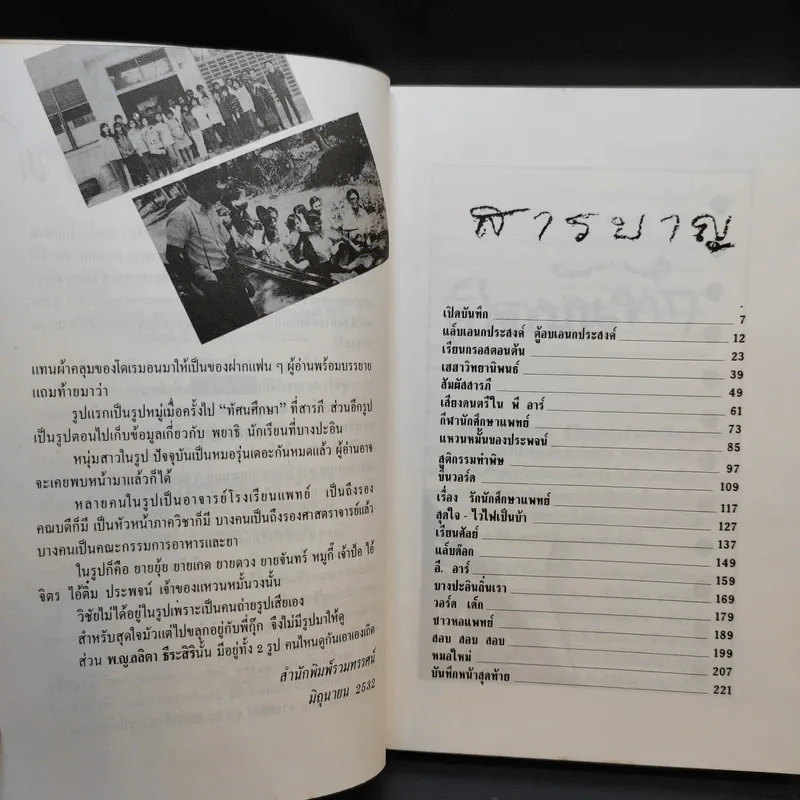 แทนผ้าคลุมของโดเรมอนมาให้เป็นของฝากแฟน ๆ ผู้อ่านพร้อมบรรยาย
แถมท้ายมาว่า
รูปแรกเป็นรูปหมู่เมื่อครั้งไป “ทัศนศึกษา” ที่สารภี ส่วนอีกรูป
เป็นรูปตอนไปเก็บข้อมูลเกี่ยวกับ พยาธิ นักเรียนที่บางปะอิน
หนุ่มสาวในรูป ปัจจุบันเป็นหมอรุ่นเดอะกันหมดแล้ว ผู้อ่านอาจ
จะเคยพบหน้ามาแล้วก็ได้
หลายคนในรูปเป็นอาจารย์โรงเรียนแพทย์ เป็นถึงรอง
คณบดีก็มี เป็นหัวหน้าภาควิชาก็มี บางคนเป็นถึงรองศาสตราจารย์แล้ว
บางคนเป็นคณะกรรมการอาหารและยา
ในรูปก็คือ ยายยุ้ย ยายเกด ยายดวง ยายจันทร์ หมูกี้ เจ้าป้อ ไอ้
จิตร ไอ้ติ๋ม ประพจน์ เจ้าของแหวนหมั้นวงนั้น
วิชัยไม่ได้อยู่ในรูปเพราะเป็นคนถ่ายรูปเสียเอง
สำหรับสุดใจมัวแต่ไปขลุกอยู่กับพี่กุ๊ก จึงไม่มีรูปมาให้ดู
ส่วน พ.ญ.ลลิตา ธีระสิรินั้น มีอยู่ทั้ง 2 รูป คนไหนดูกันเอาเองเถิด
สำนักพิมพ์รวมทรรศน์
มิถุนายน 2532
สารบาญ
เปิดบันทึก 7
แล็บเอนกประสงค์ ตู้อบเอนกประสงค์ 12
เรียนกรอสตอนต้น 23
เฮฮาวิทยานิพนธ์ 39
สัมผัสสารภี 49
เสียงดนตรีใน พี อาร์ 61
กีฬานักศึกษาแพทย์ 73
แหวนหมั้นของประพจน์ 85
สูติกรรมทำพิษ 97
ขึ้นวอร์ด 109
เรื่อง รักนักศึกษาแพทย์ 117
สุดใจ - ไวไฟเป็นบ้า 127
เรียนศัลย์ 137
แล็บด๊อก 149
อี. อาร์ 159
บางปะอินถิ่นเรา 169
วอร์ด เด็ก 179
ชาวหอแพทย์ 189
สอบ สอบ สอบ 199
หมอใหม่ 207
บันทึกหน้าสุดท้าย 221